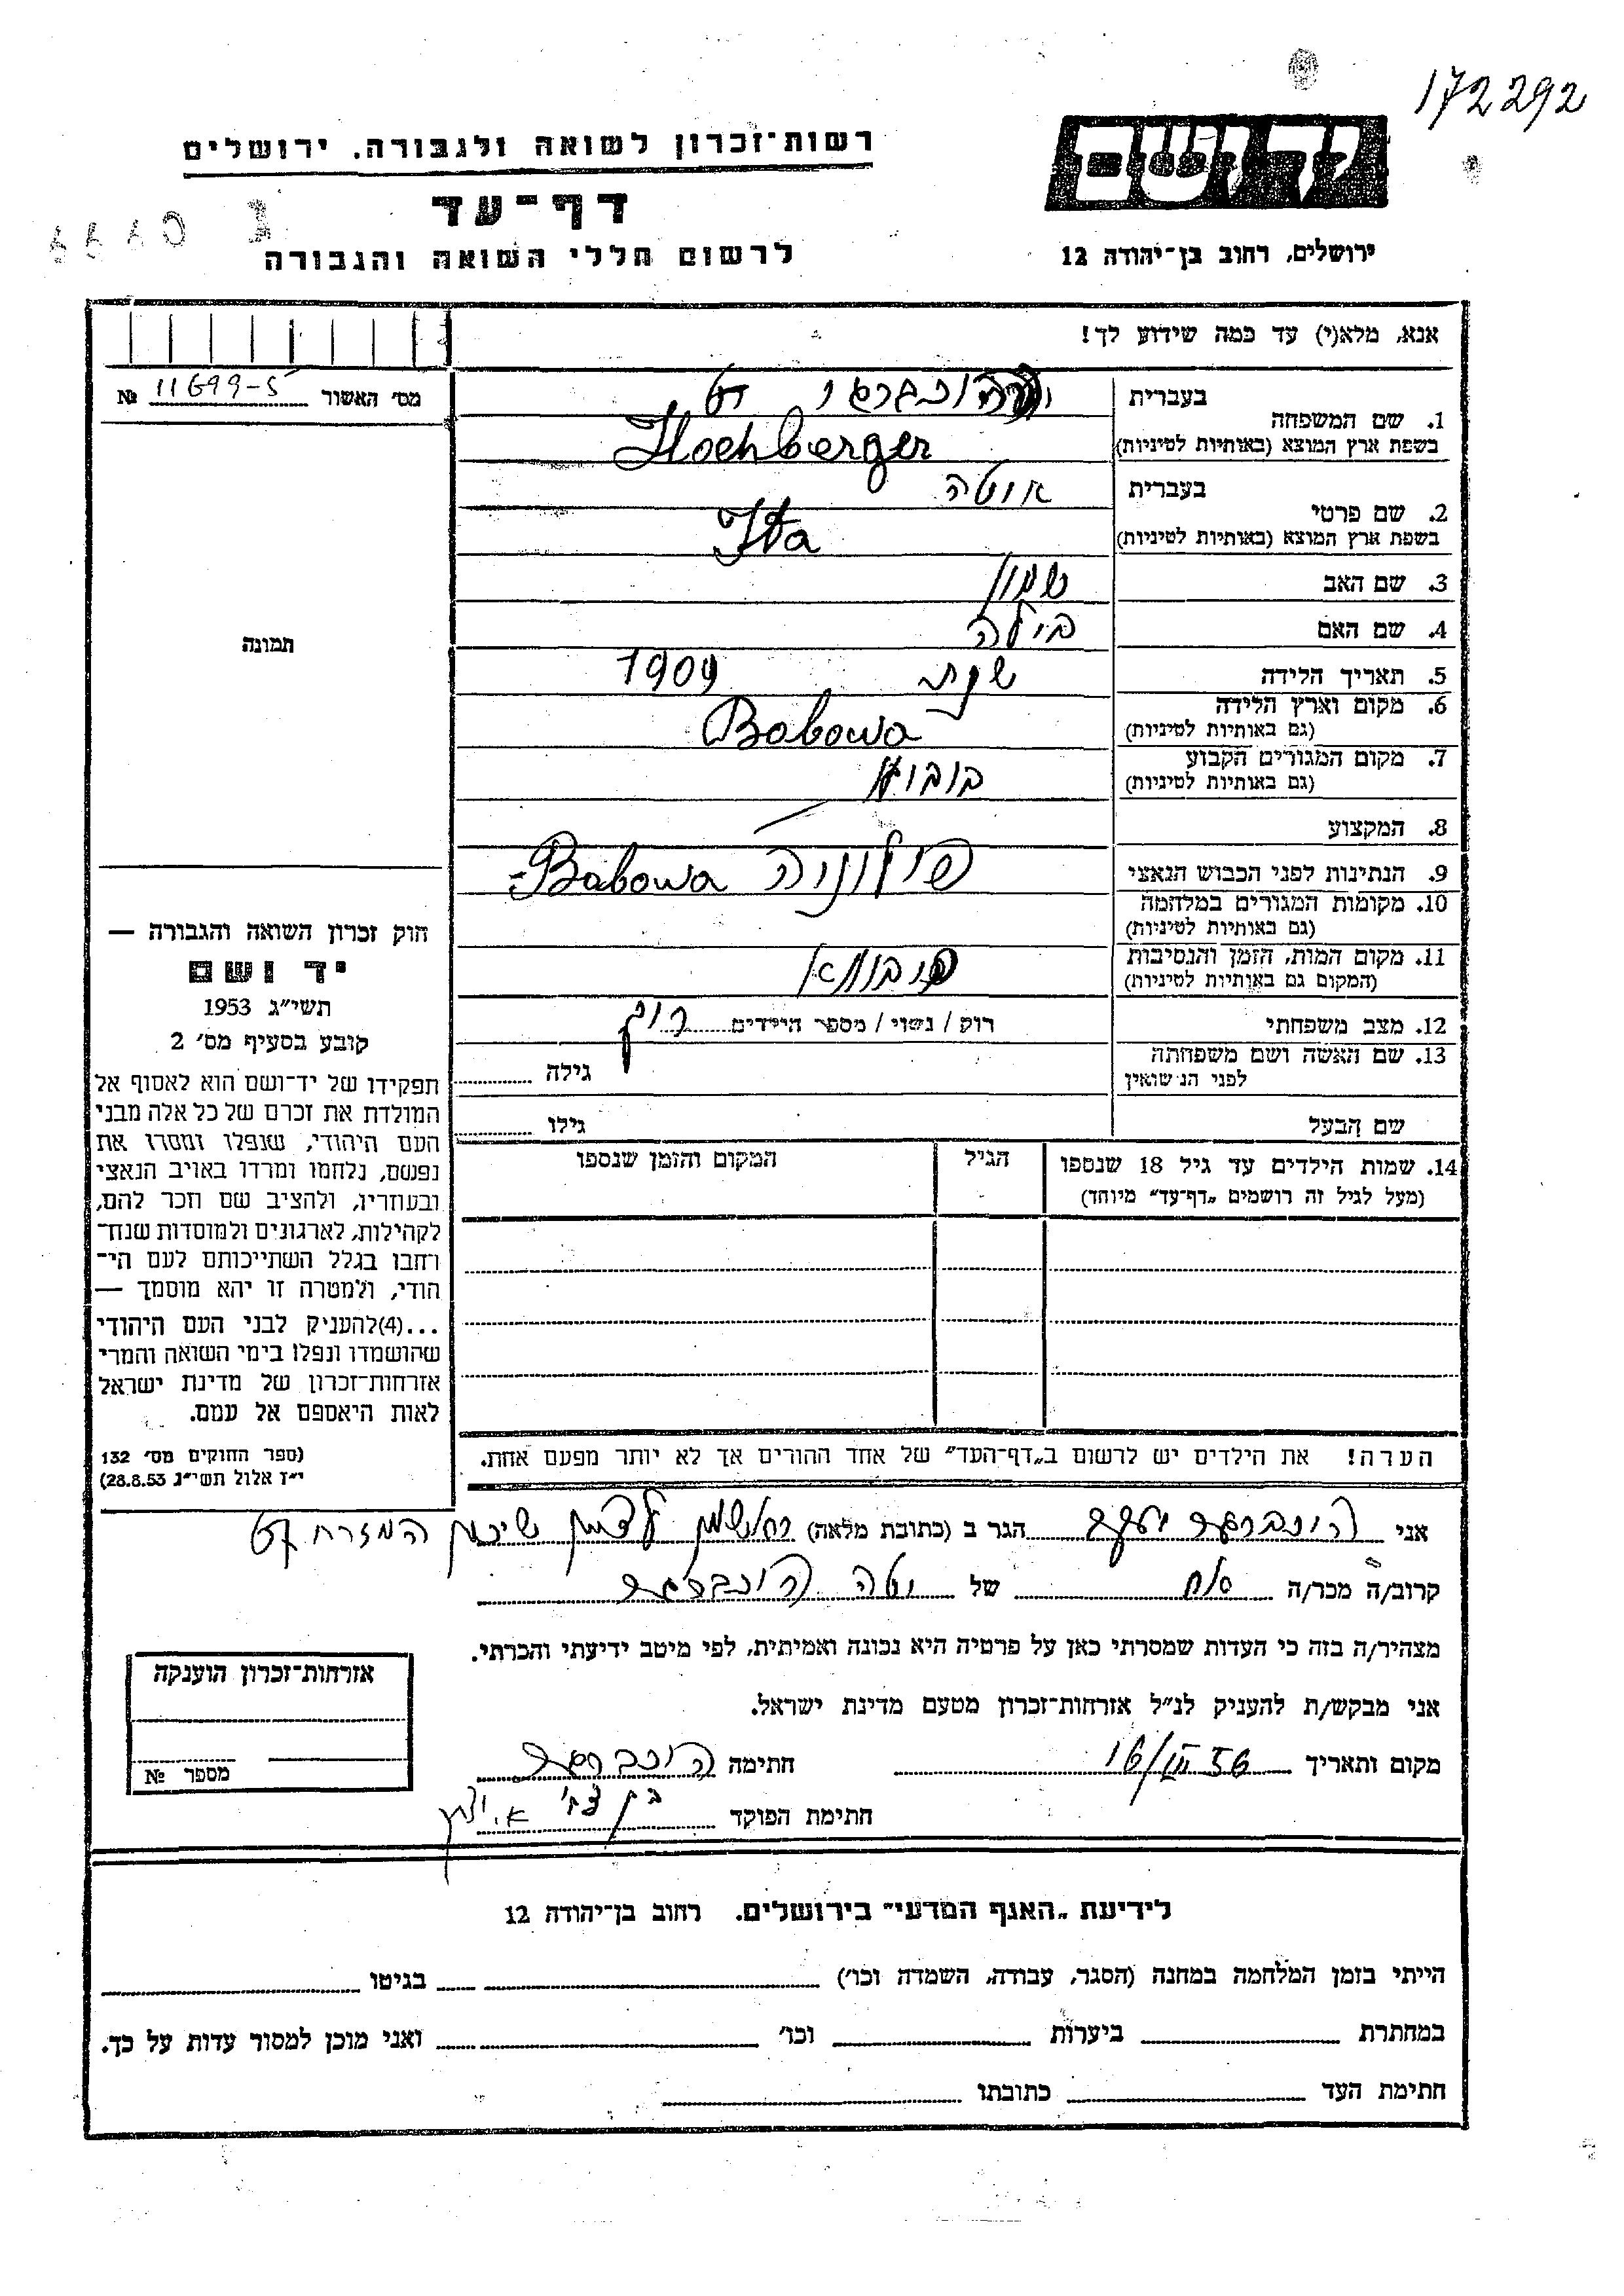 172292
רשות־זכרון לשואה ולגבורה. ירושלים
יד ושם
דף־עד
לרשום חללי השואה והגבורה
ירושלים, רחוב בן־יהודה 12
אנא, מלא(י) עד כמה שידוע לך!
מס׳ האשור 11699-5 №
בעברית
1. שם המשפחה
בשפת ארץ המוצא (באותיות לטיניות) Hochberger
בעברית
2. שם פרטי
בשפת ארץ המוצא (באותיות לטיניות) Ita
3. שם האב שמעון
4. שם האם ביילה
5. תאריך הלידה שנת 1909
6. מקום וארץ הלידה Bobowa
(גם באותיות לטיניות)
7. מקום המגורים הקבוע
(גם באותיות לטיניות)
8. המקצוע —
9. הנתינות לפני הכבוש הנאצי פולוניה Babowa
10. מקומות המגורים במלחמה
(גם באותיות לטיניות)
11. מקום המות, הזמן והנסיבות
(המקום גם באותיות לטיניות)
12. מצב משפחתי רוק / נשוי / מספר הילדים
13. שם האשה ושם משפחתה גילה
לפני הנשואין
שם הבעל גילו
14. שמות הילדים עד גיל 18 שנספו הגיל המקום והזמן שנספו
(מעל לגיל זה רושמים „דף־עד״ מיוחד)
הערה! את הילדים יש לרשום ב„דף־העד״ של אחד ההורים אך לא יותר מפעם אחת.
תמונה
חוק זכרון השואה והגבורה —
יד ושם
תשי״ג 1953
קובע בסעיף מס׳ 2
תפקידו של יד־ושם הוא לאסוף אל
המולדת את זכרם של כל אלה מבני
העם היהודי, שנפלו ומסרו את
נפשם, נלחמו ומרדו באויב הנאצי
ובעוזריו, ולהציב שם וזכר להם,
לקהילות, לארגונים ולמוסדות שנח־
רבו בגלל השתייכותם לעם הי־
הודי, ולמטרה זו יהא מוסמך —
...(4)להעניק לבני העם היהודי
שהושמדו ונפלו בימי השואה והמרי
אזרחות־זכרון של מדינת ישראל
לאות היאספם אל עמם.
(ספר החוקים מס׳ 132
י״ז אלול תשי״ג 28.8.53)
אני הוכברגר יעקב הגר ב (כתובת מלאה) שיכון המזרחי
קרוב/ה מכר/ה אח של הוכברגר
מצהיר/ה בזה כי העדות שמסרתי כאן על פרטיה היא נכונה ואמיתית, לפי מיטב ידיעתי והכרתי.
אני מבקש/ת להעניק לנ״ל אזרחות־זכרון מטעם מדינת ישראל.
מקום ותאריך 16/III 56 חתימה הוכברגר
חתימת הפוקד
אזרחות־זכרון הוענקה
מספר №
לידיעת „האגף המדעי״ בירושלים. רחוב בן־יהודה 12
הייתי בזמן המלחמה במחנה (הסגר, עבודה, השמדה וכו׳) בגיטו
במחתרת ביערות וכו׳ ואני מוכן למסור עדות על כך.
חתימת העד כתובתו